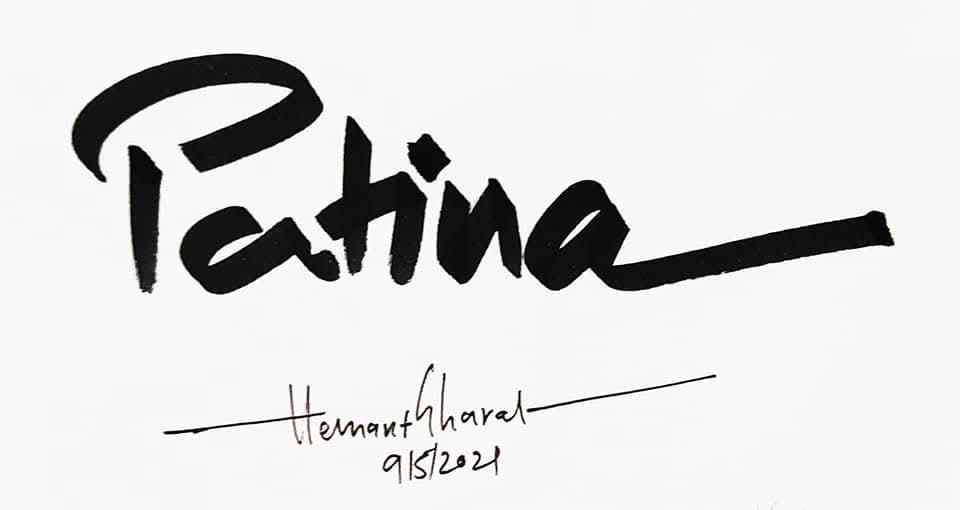 Patina
Hemant Gharat
9/5/2021